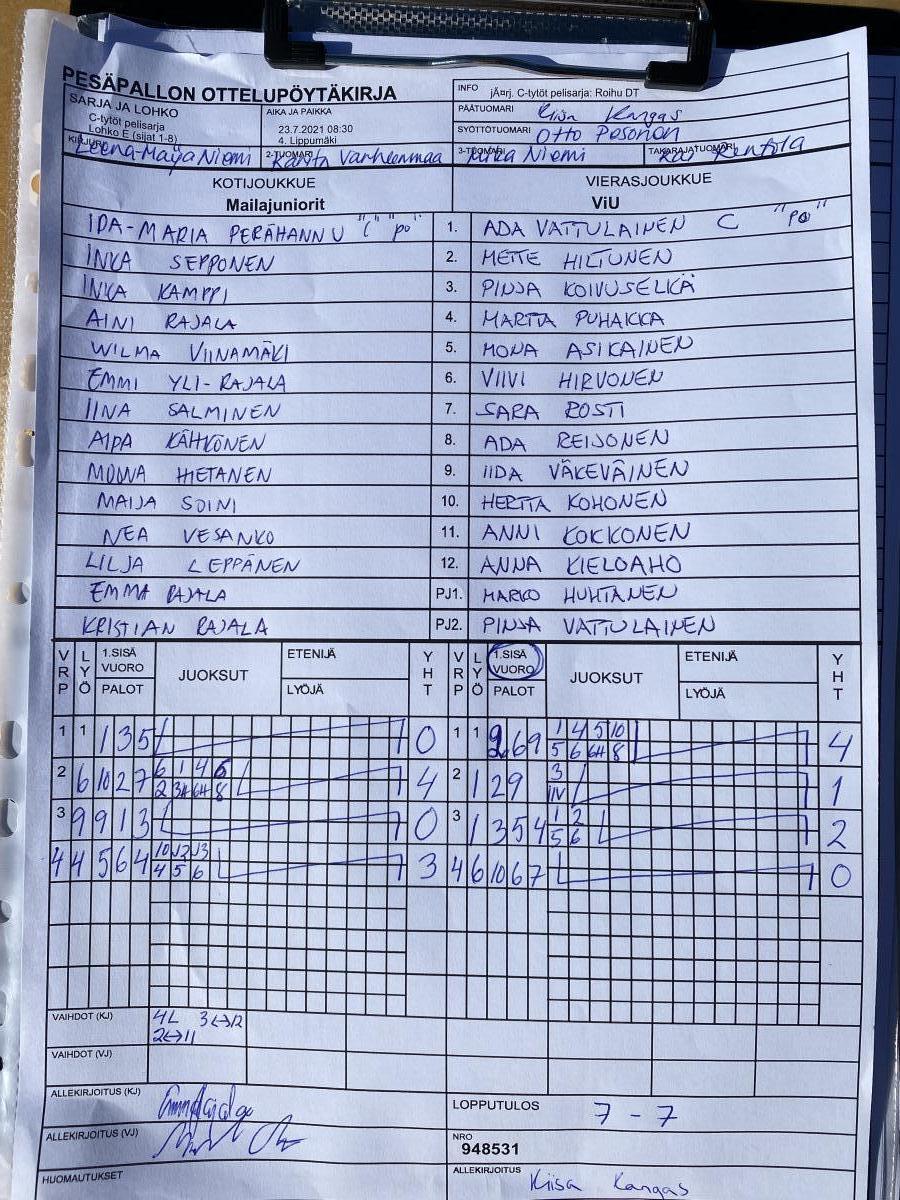 PESÄPALLON OTTELUPÖYTÄKIRJA
INFO jÃ¤rj. C-tytöt pelisarja: Roihu DT
SARJA JA LOHKO
C-tytöt pelisarja
Lohko E (sijat 1-8)
AIKA JA PAIKKA
23.7.2021 08:30
4. Lippumäki
PÄÄTUOMARI Kiisa Kangas
SYÖTTÖTUOMARI Otto Pesonen
KIRJURI Leena-Maija Niemi
2-TUOMARI Varheenmaa
3-TUOMARI Niemi
TAKARAJATUOMARI Rentola
KOTIJOUKKUE
Mailajuniorit
VIERASJOUKKUE
ViU
IDA-MARIA PERÄHANNU "C" "po" 1. ADA VATTULAINEN C "po"
INKA SEPPONEN 2. METTE HILTUNEN
INKA KAMPPI 3. PINJA KOIVUSELKÄ
AINI RAJALA 4. MARTTA PUHAKKA
WILMA VIINAMÄKI 5. MONA ASIKAINEN
EMMI YLI-RAJALA 6. VIIVI HIRVONEN
IINA SALMINEN 7. SARA ROSTI
AIDA KÄHKÖNEN 8. ADA REIJONEN
MOONA HIETANEN 9. IIDA VÄKEVÄINEN
MAIJA SOINI 10. HERTTA KOHONEN
NEA VESANKO 11. ANNI KOKKONEN
LILJA LEPPÄNEN 12. ANNA KIELOAHO
EMMA RAJALA PJ1. MARKO HUHTANEN
KRISTIAN RAJALA PJ2. PINJA VATTULAINEN
VRP LYÖ 1.SISÄ VUORO PALOT JUOKSUT ETENIJÄ LYÖJÄ YHT VRP LYÖ 1.SISÄ VUORO PALOT JUOKSUT ETENIJÄ LYÖJÄ YHT
1 1 1 3 5 0 1 1 2 6 9 1 4 5 10 4
5 6 6H 8
2 6 10 2 7 6 1 4 5 4 2 1 2 9 3 1
2 3H 6H 8 11V
3 9 9 1 3 0 3 1 3 5 4 1 2 2
5 6
4 4 5 6 4 10 12 13 3 4 6 10 6 7 0
4 5 6
VAIHDOT (KJ) 4L 3↔12
2↔11
VAIHDOT (VJ)
ALLEKIRJOITUS (KJ)
LOPPUTULOS 7 - 7
ALLEKIRJOITUS (VJ)
NRO
948531
HUOMAUTUKSET
ALLEKIRJOITUS Kiisa Kangas